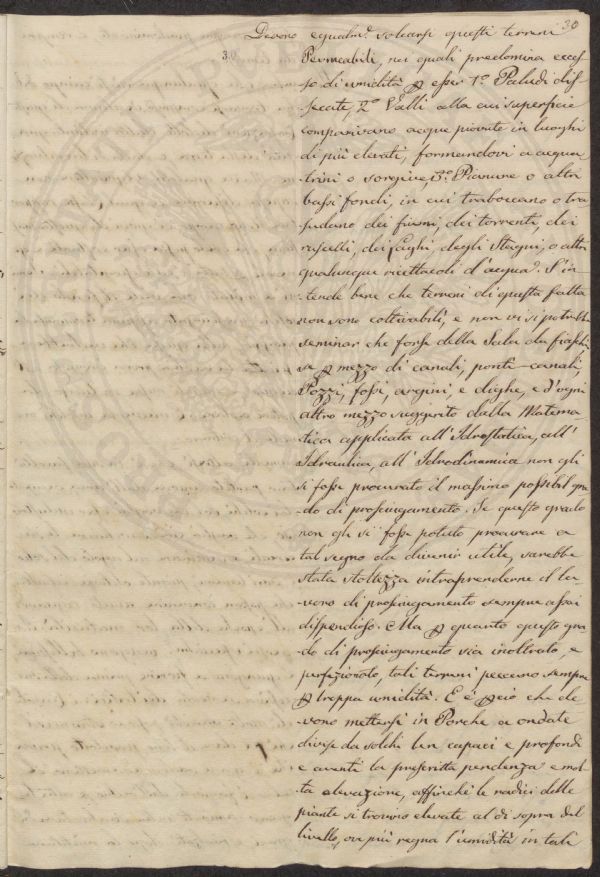 30
Devono egualm.e solcarsi questi terreni
30
Permeabili, nei quali predomina ecces-
so di umidità p esser 1.o Paludi dis-
seccate, 2.o Valli alla cui superficie
compariscano acque piovute in luoghi
di più elevati, formandovi acqua-
trini o sorgive, 3.o Pianure o altri
bassi fondi, in cui traboccano o tra-
sudano dei fiumi, dei torrenti, dei
ruscelli, dei Laghi, degli Stagni, o altri
qualunque ricettacoli d'acqua. S'in-
tende bene che terreni di questa fatta
non sono coltivabili, e non vi si potrebbe
seminar che forse della Sala da fiaschi,
se p mezzo di canali, ponti-canali,
Pozzi, fossi, argini, e dighe, e d'ogni
altro mezzo suggerito dalla Matema-
tica applicata all'Idrostatica, all'
Idraulica, all'Idrodinamica non gli
si fosse procurato il massimo possibil gra-
do di prosciugamento. Se questo grado
non gli si fosse potuto procurare a
tal segno da divenir utile, sarebbe
stata stoltezza intraprenderne il la-
voro di prosciugamento sempre assai
dispendioso. Ma p quanto questo gra-
do di prosciugamento sia inoltrato, e
perfezionato, tali terreni peccano sempre
p troppa umidità. E è p ciò che de-
vono mettersi in Porche a ondate
divise da solchi ben capaci e profondi
e aventi la prescritta pendenza e mol-
ta elevazione, affinchè le radici delle
piante si trovino elevate al di sopra del
livello, ove più regna l'umidità in tali